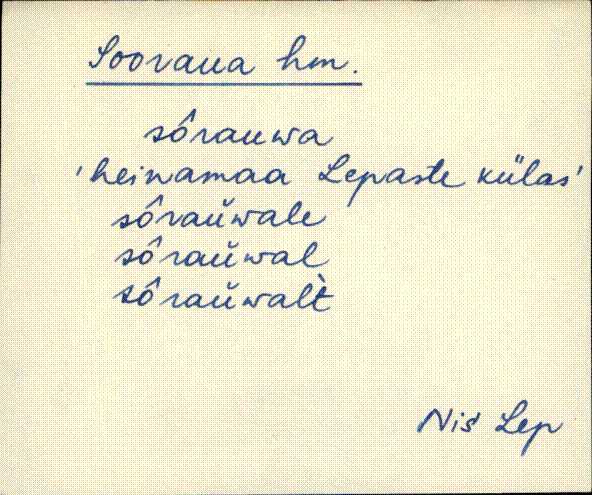 Sooraua hm.
sôrauwa
'heinamaa Lepaste külas'
sôraŭwale
sôraŭwal
sôraŭwalt̀
Nis Lep